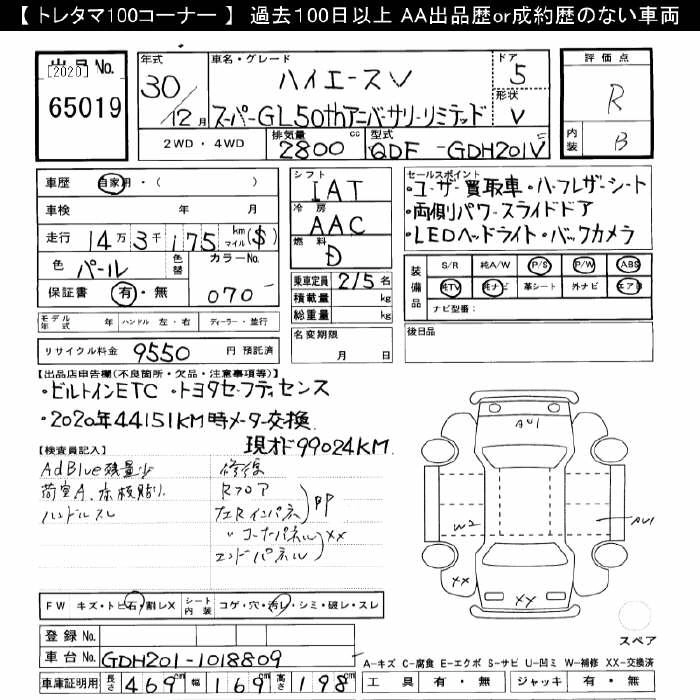 【 トレタマ100コーナー 】 過去100日以上 AA出品歴or成約歴のない車両
出品 No. [2020] 65019
年式 30/12月
車名・グレード ハイエースV スーパーGL50thアニバーサリーリミテッド
ドア 5
形状 V
2WD ・ 4WD
排気量 2800 cc
型式 QDF-GDH201V
評価点 R
内装 B
車歴 自家用・( )
車検 年 月
走行 14万3千175 km マイル ($)
色 パール
色替
カラーNo. 070
保証書 有・無
シフト IAT
冷房 AAC
燃料 D
乗車定員 2/5名
積載量 kg
総重量 kg
名変期限 月 日
セールスポイント
・ユーザー買取車・ハーフレザーシート
・両側パワースライドドア
・LEDヘッドライト・バックカメラ
装備品 S/R 純A/W P/S P/W ABS
純TV 純ナビ 革シート 外ナビ エアB
ナビ型番:
後日品
モデル年式 年 ハンドル 左・右 ディーラー・並行
リサイクル料金 9550 円 預託済
【出品店申告欄(不良箇所・欠品・注意事項等)】
・ビルトインETC ・トヨタセーフティセンス
・2020年44151KM時メーター交換
現オド99024KM
【検査員記入】
AdBlue残量少
荷室A、床板貼り
ハンドルスレ
修復
Rフロア
左Rインパネ PP
〃コーナーパネル XX
エンドパネル
AU1
W2
AU1
XX
XY
スペア
FW キズ・トビ石・割レX
シート内装 コゲ・穴・汚レ・シミ・破レ・スレ
登録 No.
車台 No. GDH201-1018809
車庫証明用 長さ 469cm 幅 169cm 高さ 198cm
A-キズ C-腐食 E-エクボ S-サビ U-凹ミ W-補修 XX-交換済
工具 有・無 ジャッキ 有・無